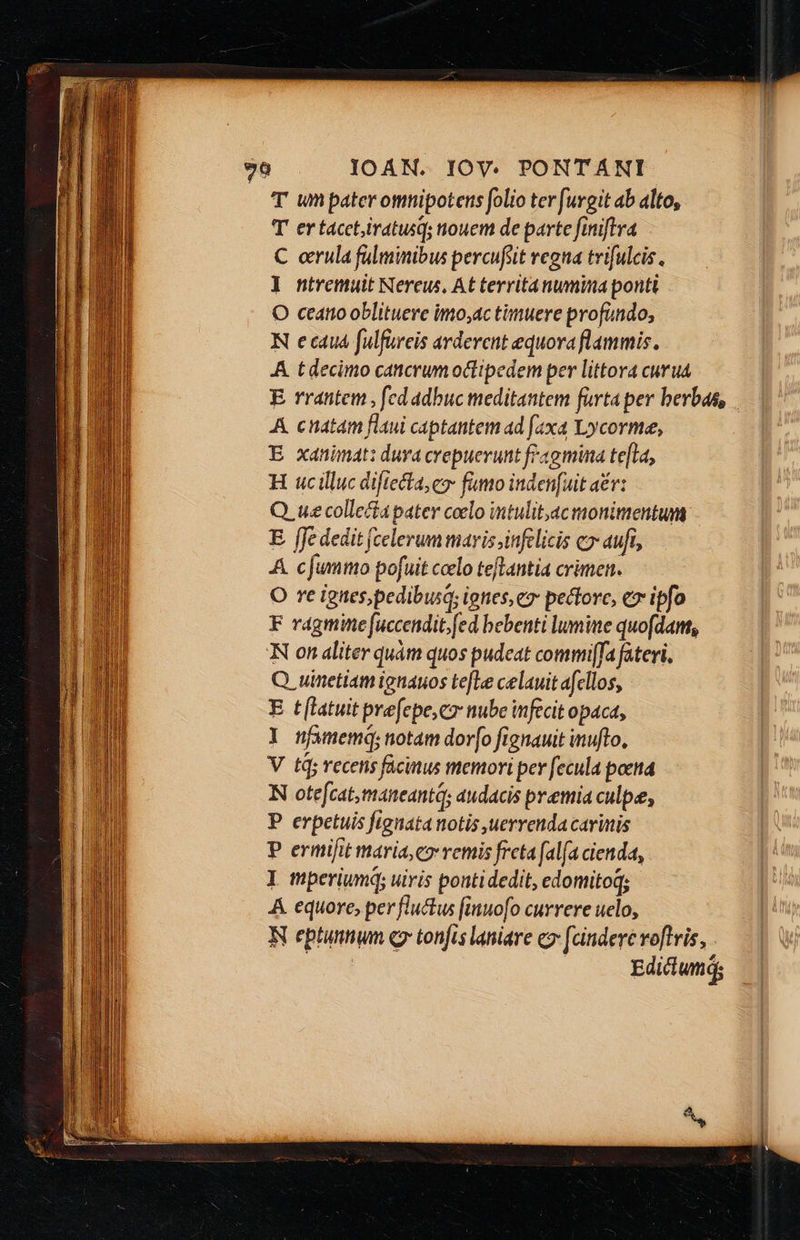 90 IOAN. IOV. PONTANI
T um pater omnipotens ſolio ter ſurgit ab alto,
T er tacet, iratusq; nouem de parte ſiniſtra
C œrula fulminibus percuſsit regna triſulcis.
I ntremuit Nereus. At territa numina ponti
O ceano oblituere imo, ac timuere profundo,
N e caua ſulfureis arderent æquora flammis.
A t decimo cancrum octipedem per littora curua
E rrantem, ſed adhuc meditantem furta per herbas,
A c natam flaui captantem ad ſaxa Lycormæ,
E xanimat: dura crepuerunt fragmina teſta,
H uc illuc diſiecta, & fumo indenſuit aër:
Q uæ collecta pater cœlo intulit, ac monimentum
E ſſe dedit ſcelerum maris, infelicis & auſi,
A c ſummo poſuit cœlo teſtantia crimen.
O re ignes, pedibusq; ignes, & pectore, & ipſo
F ragmine ſuccendit, ſed hebenti lumine quoſdam,
N on aliter quàm quos pudeat commiſſa fateri.
Q uin etiam ignauos teſtæ celauit aſellos,
E t ſtatuit præſepe, & nube infecit opaca,
I nfamemq; notam dorſo ſignauit inuſto.
V tq; recens facinus memori per ſecula pœna
N oteſcat, maneantq; audacis præmia culpæ,
P erpetuis ſignata notis, uerrenda carinis
P ermiſit maria, & remis freta ſalſa cienda,
I mperiumq; uiris ponti dedit, edomitoq;
A equore, per fluctus ſinuoſo currere uelo,
N eptunnum & tonſis laniare & ſcindere roſtris,
Edictumq;